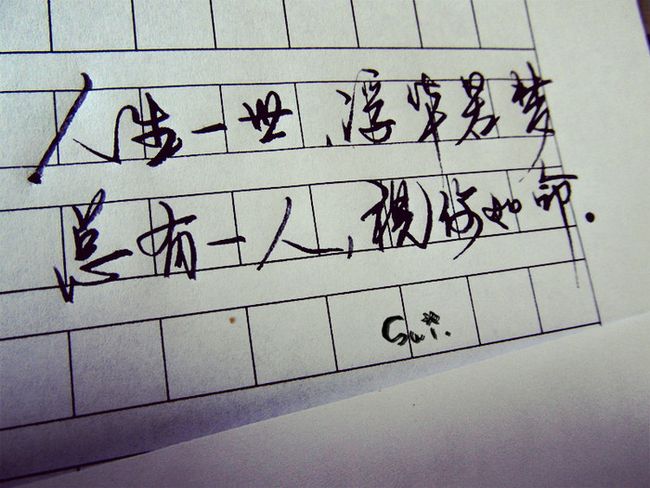 人生一世,浮华若梦
总有一人,视你如命.
Sut.